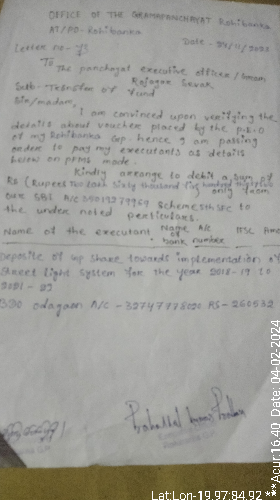 OFFICE OF THE GRAMAPANCHAYAT Rohibanka
At/PO-Rohibanka
Letter no-
Date - 29/11/2023
To The panchayat executive officer/Gram
Rojagar Sevak
Sub- Transfer of fund
Sir/madam,
I am convinced upon verifying the
details about voucher placed by the P.E.O
of my Rohibanka Gp. hence I am passing
order to pay my executants as details
below on PFMS made.
Kindly arrange to debit a sum of
RS (Rupees Two Lakh Sixty thousand five hundred thirty two
only from
our SBI A/C
the under noted particulars.
Name of the executant Name A/c IFSC Amo
of
bank number
Deposite of Gp share towards implementation of
Street light System for the year 2018-19 to
2021-22
BDO Odagaon A/C - 32747778020 RS- 260532
Lat:Lon-19.97:84.92***Acur:16.40 Date: 04-02-2024